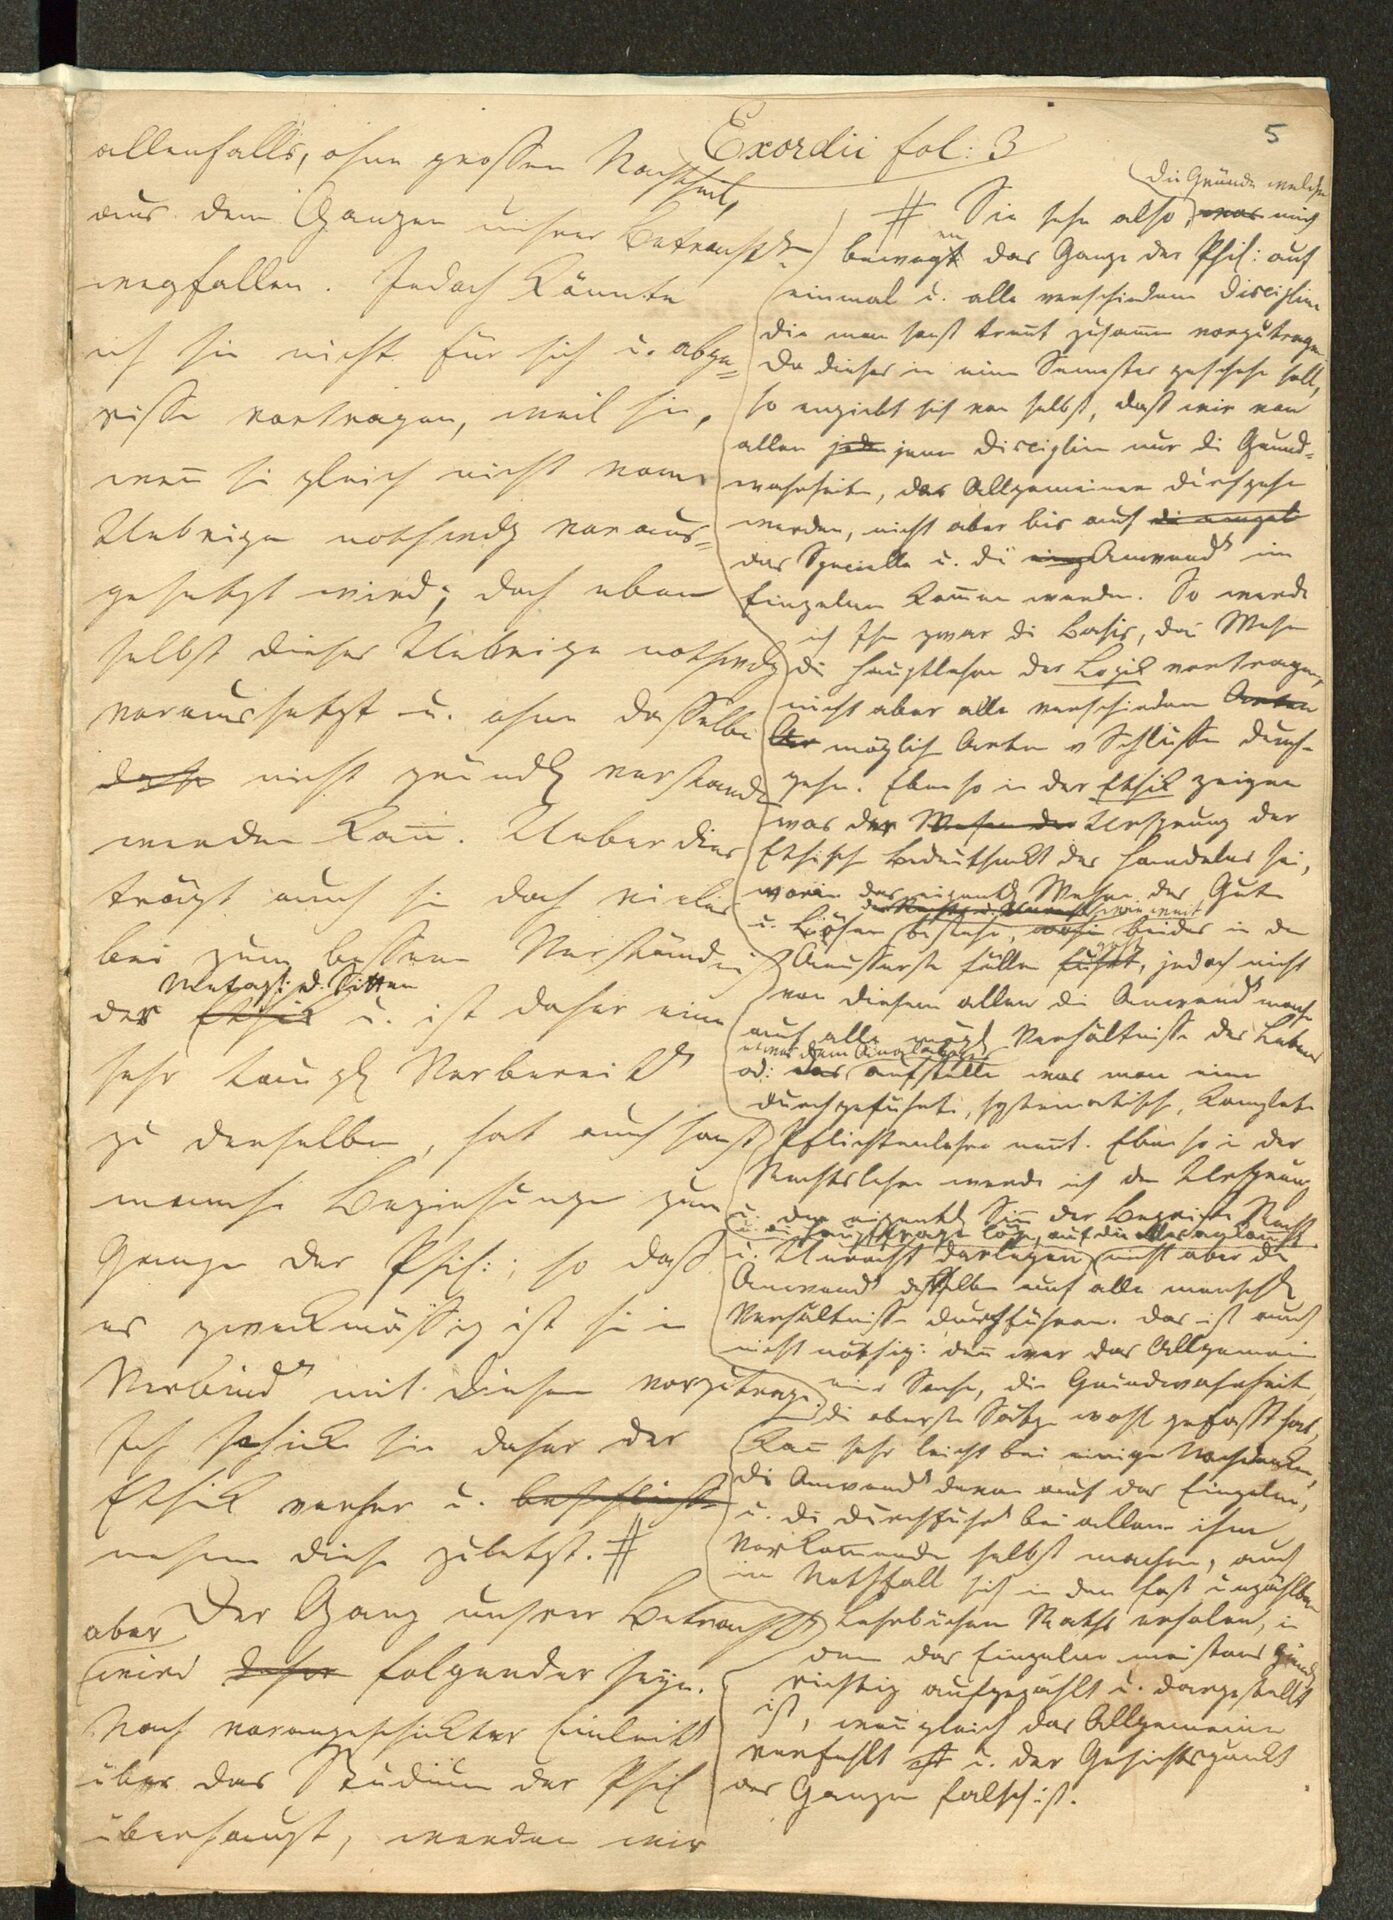 Exordii fol: 3
5
allenfalls, ohne großen Nachtheil,
aus dem Ganzen unsrer Betrachtg
wegfallen. Jedoch könnte
ich sie nicht für sich u. abge-
rissen vortragen, weil sie,
wenn sie gleich nicht vom
Uebrigen nothwdg voraus-
gesetzt wird; doch eben
selbst dieses Uebrige nothwdg
voraussetzt u. ohne dasselbe
nicht gründl verstanden
werden kann. Ueberdies
trägt auch sie doch vieles
bei zum bessern Verständniß
Metaph: d. Sitten
der Ethik u. ist daher eine
sehr taugl Vorbereitg
zu derselben, hat auch sonst
manche Beziehungen zum
Ganzen der Phil:, so daß
es zweckmäßig ist sie in
Verbindg mit diesem vorzutragen.
Ich schicke sie daher der
Ethik vorher u.
nehme diese zuletzt. #
Der Gang unsrer Betrachtg
aber
wird daher folgender seyn.
Nach vorangeschickter Einleitg
über das Studium der Phil
überhaupt, werden wir
die Gründe welche
# Sie sehn also, was mich
bewegen das Ganze der Phil: auf
einmal u. alle verschiednen Disciplinen
die man sonst trennt zusammen vorzutragen.
Da dieses in einem Semester geschehn soll,
so ergiebt sich von selbst, daß wir von
allen jede jenen Disciplinen nur die Grund-
wahrheiten, das Allgemeine durchgehn
werden, nicht aber bis auf die einzel
das Specielle u. die einz Anwendg im
Einzelnen kommen werden. So werde
ich Ihnen zwar die Basis, das Wesen
die Hauptlehren der Logik vortragen,
nicht aber alle verschiednen Arten
der möglichen Arten v Schlüssen durch-
gehn. Eben so in der Ethik zeigen
was der Wesen der Ursprung der
Ethischen Bedeutsamkt des Handelns sei,
worin das eigentl Wesen des Guten
wie weit
u. Bösen bestehe, wohin beides in den
geht
Aeussersten Fällen führt, jedoch nicht
von diesem allen die Anwendg machen
auf alle mögl Verhältnisse des Lebens
od: das aufstelle was man eine
durchgeführte, systematische, komplete
Pflichtenlehre nennt. Eben so in der
Rechtslehre werde ich den Ursprung
u. den eigentl Sinn der Begriffe Recht
u. die Hauptfrage lösen, auf die alles ankommt
u. Unrecht darlegen, nicht aber die
Anwendg desselben auf alle menschl
Verhältnisse durchführen. Das ist auch
nicht nöthig: denn wer das Allgemeine
einer Sache, die Grundwahrheiten,
die obersten Sätze wohl gefaßt hat,
kann sehr leicht bei einigem Nachdenken,
die Anwendg davon auf das Einzelne,
u. die Durchführg bei allem ihm
Vorkommenden selbst machen, auch
im Nothfall sich in den fast unzähligen
Lehrbüchern Raths erholen, in
denen das Einzelne meistens
richtig aufgezählt u. dargestellt
ist, wenn gleich das Allgemeine
verfehlt ist u. der Gesichtspunkt
des Ganzen falsch ist.